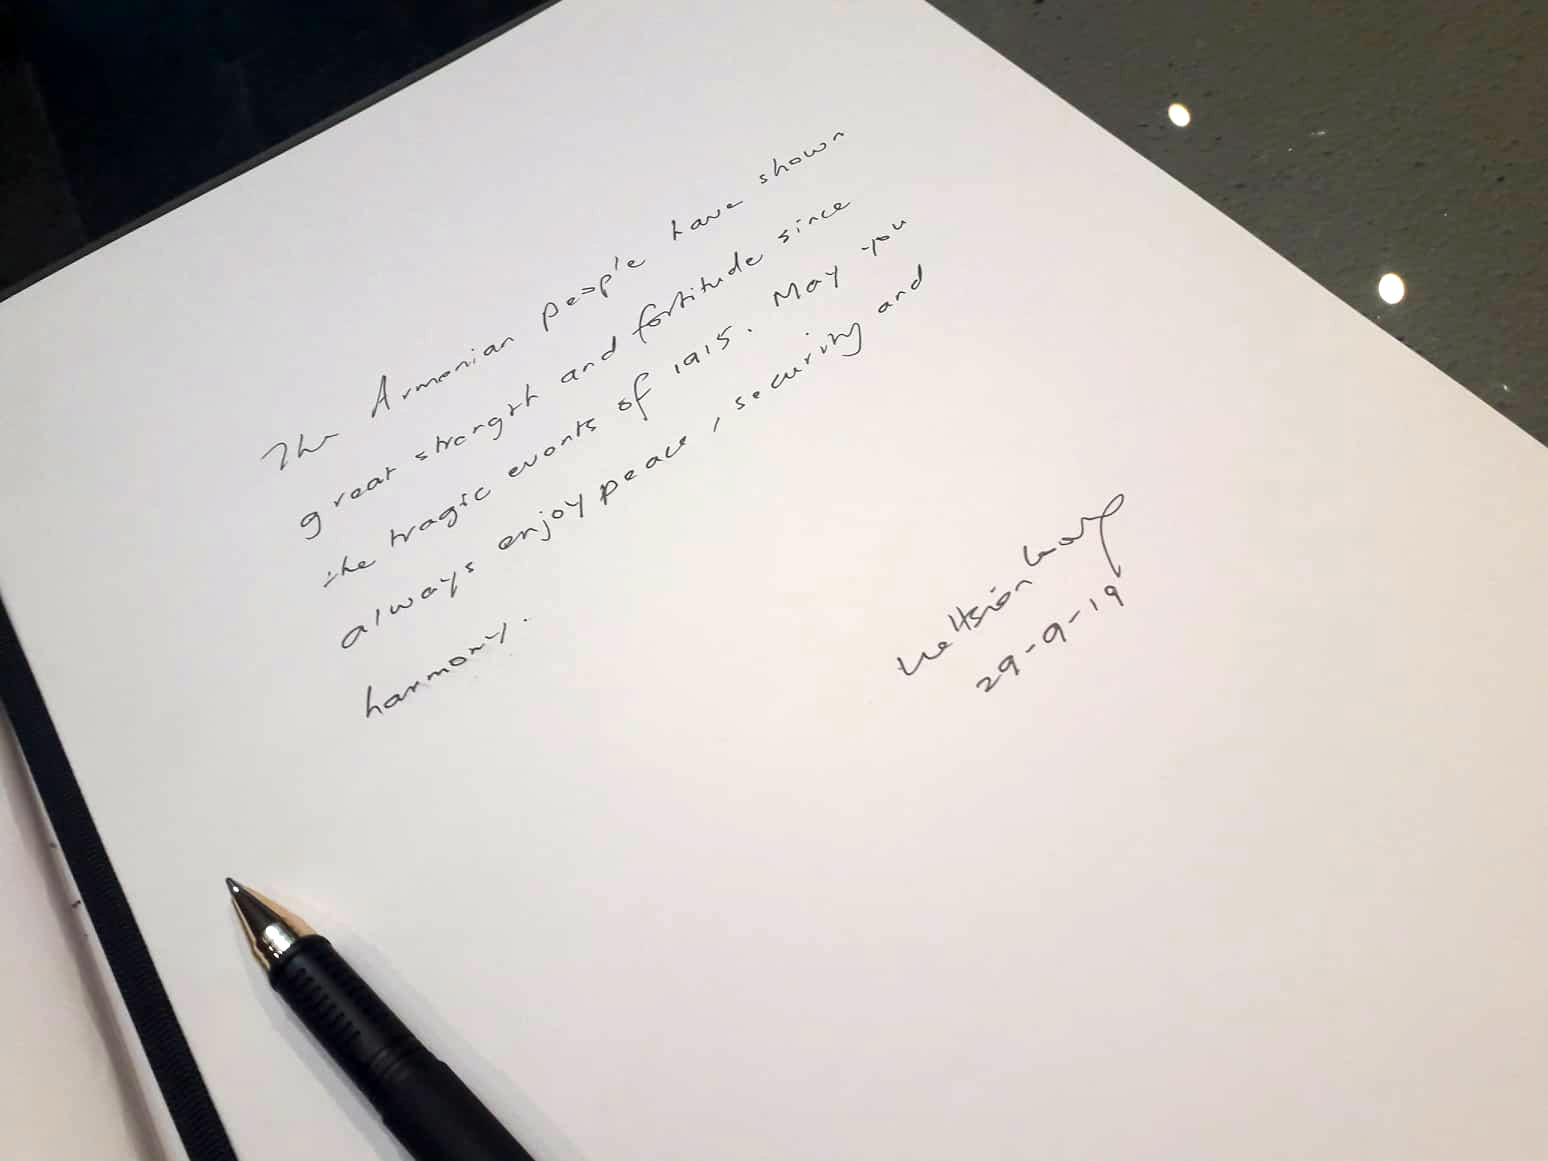 The Armenian people have shown
great strength and fortitude since
the tragic events of 1915. May you
always enjoy peace, security and
harmony.
Lee Hsien Loong
29-9-19